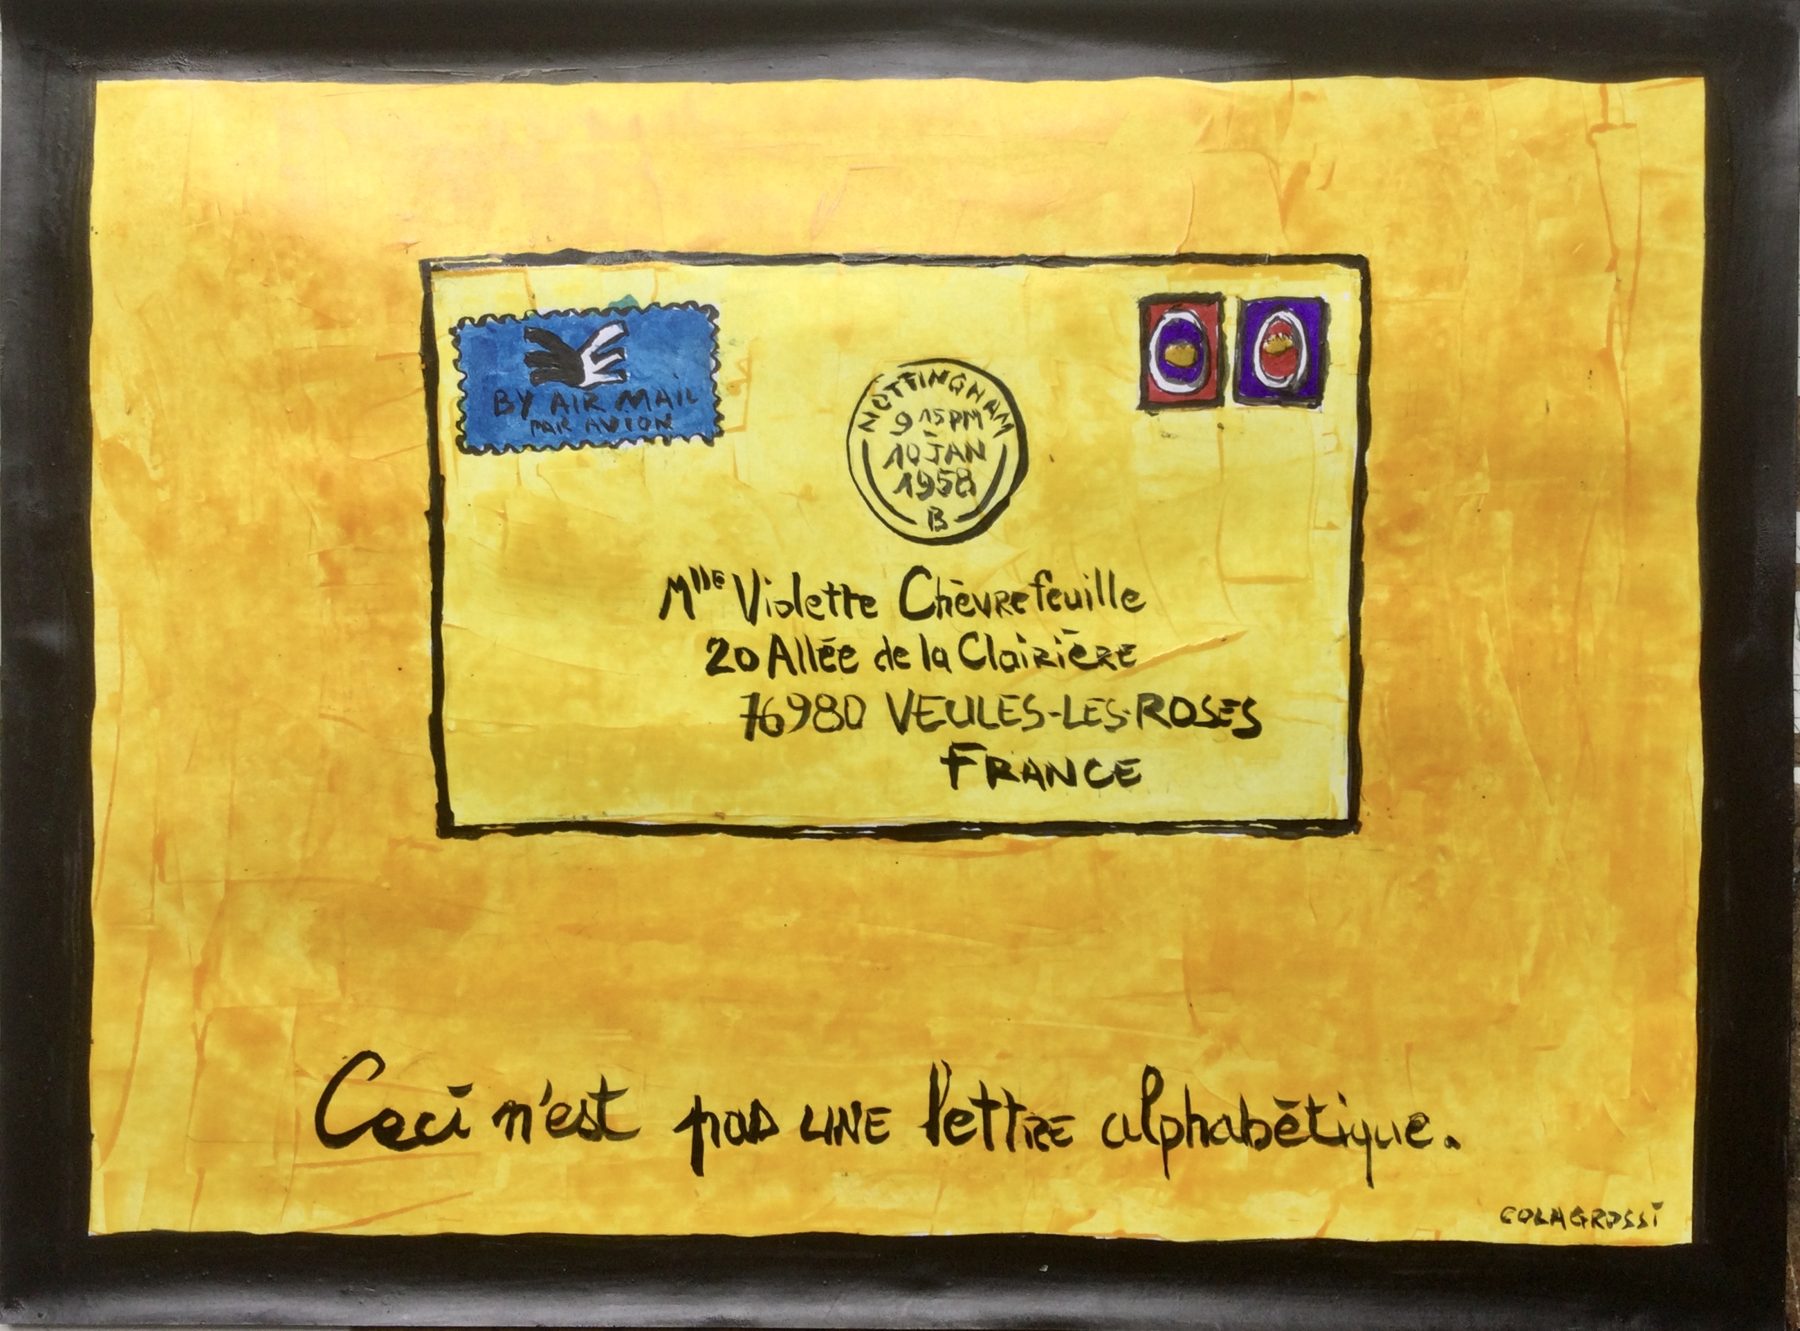 BY AIR MAIL
PAR AVION
NOTTINGHAM
9 15 PM
10 JAN
1958
B
Mlle Violette Chèvrefeuille
20 Allée de la Clairière
76980 VEULES-LES-ROSES
FRANCE
Ceci n'est pas une lettre alphabétique.
COLAGROSSI